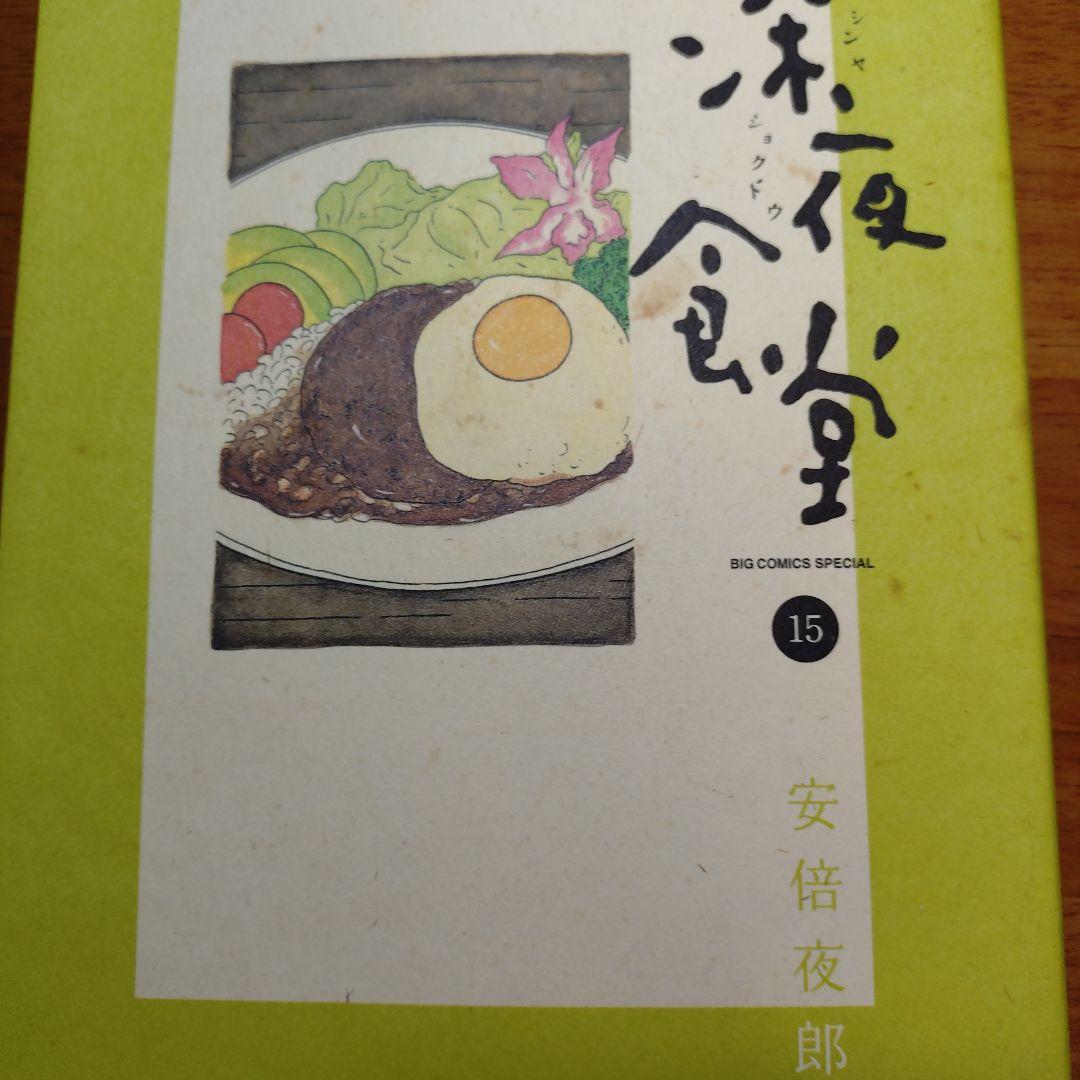 深夜
シンヤ
食堂
ショクドウ
BIG COMICS SPECIAL
15
安倍夜郎